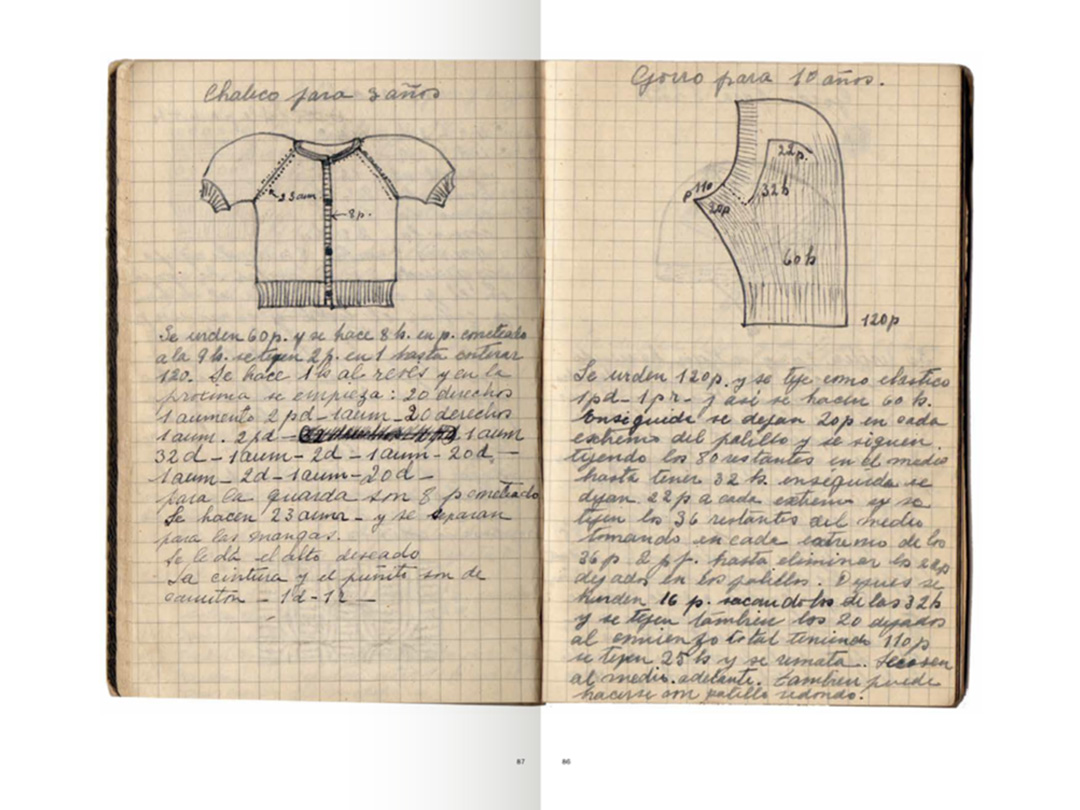 Chaleco para 3 años
23 aum.
8 p.
Se urden 60 p. y se hace 8 h. en p.
a la 9 h. se tejen 2 p. en 1 hasta
120. Se hace 1 h al revés y en la
procima se empieza: 20 derechos
1 aumento 2 pd - 1 aum - 20 derechos
1 aum. 2 pd - 1 aum
32 d - 1 aum - 2 d - 1 aum - 20 d. -
1 aum - 2 d - 1 aum - 20 d -
para la guarda son 8 p
Se hacen 23 aum - y se separan
para las mangas.
Se le dá el alto deseado
La cintura y el puñito son de
- 1 d - 1 r -
Gorro para 10 años.
22 p.
110
p
32 h
20 p
60 h
120 p
Se urden 120 p. y se teje como elastico
1 pd - 1 pr - y así se hacen 60 h.
Enseguida se dejan 20 p en cada
extremo del palillo y se siguen
tejiendo los 80 restantes en el medio
hasta tener 32 h. enseguida se
dejan 22 p a cada extremo y se
tejen los 36 restantes del medio
tomando en cada extremo de los
36 p. 2 p j. hasta eliminar los 22 p
dejados en los palillos. Depues se
hurden 16 p. sacandolos de las 32 h
y se tejen tambien los 20 dejados
al comienzo total teniendo 110 p
se tejen 25 h y se remata. Se cosen
al medio adelante. Tambien puede
hacerse con palillo redondo.
87
86